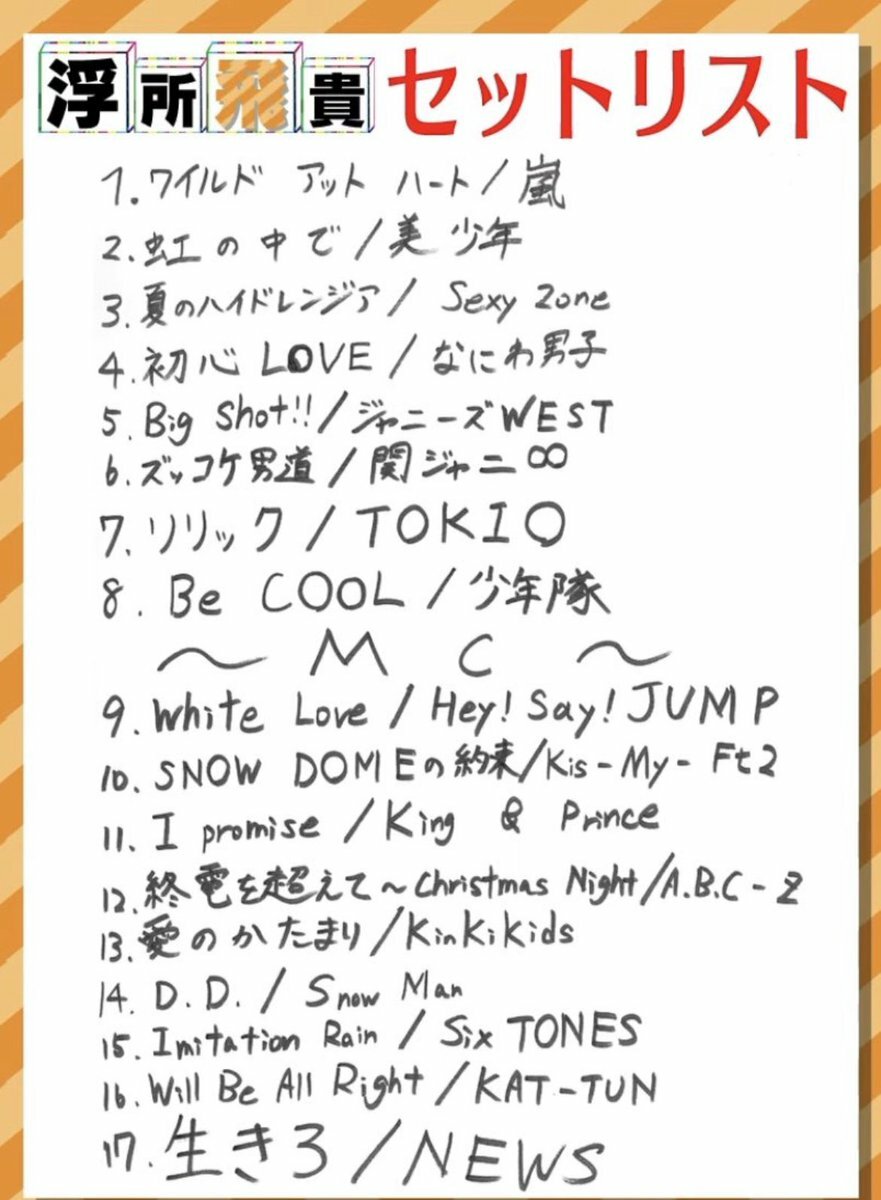 浮所飛貴セットリスト
1.ワイルド アット ハート/嵐
2.虹の中で/美少年
3.夏のハイドレンジア/ Sexy Zone
4.初心LOVE/なにわ男子
5.Big Shot!!/ジャニーズWEST
6.ズッコケ男道/関ジャニ∞
7.リリック/TOKIO
8.Be COOL/少年隊
～MC～
9.White Love/Hey!Say!JUMP
10.SNOW DOMEの約束/Kis-My-Ft2
11.I promise/King & Prince
12.終電を超えて～Christmas Night/A.B.C-Z
13.愛のかたまり/KinKiKids
14.D.D./Snow Man
15.Imitation Rain/SixTONES
16.Will Be All Right/KAT-TUN
17.生きろ/NEWS